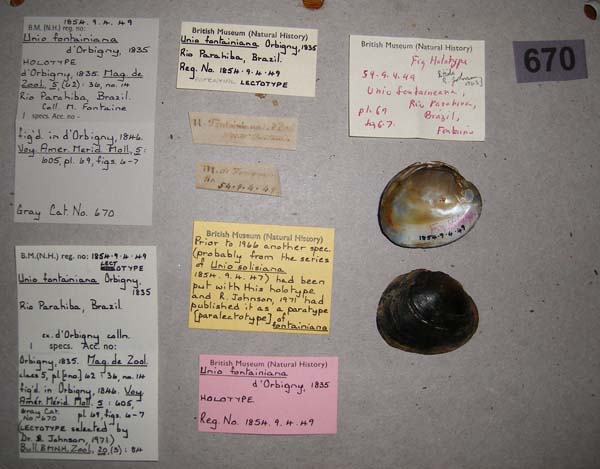 1854.9.4.49
B.M.(N.H.) reg. no.
Unio fontainiana
d'Orbigny, 1835
HOLOTYPE
d'Orbigny, 1835. Mag. de
Zool. 5 (62): 36, no. 14
Rio Parahiba, Brazil.
Coll. M. Fontaine
1 specs. Acc. no -
fig'd. in d'Orbigny, 1846.
Voy. Amer. Merid. Moll. 5:
605, pl. 69, figs. 6-7
Gray Cat. No. 670
B.M.(N.H.) reg. no: 1854.9.4.49
LECTOTYPE
Unio fontainiana Orbigny,
1835
Rio Parahiba, Brazil
ex. d'Orbigny colln.
1 specs. Acc. no:
Orbigny, 1835. Mag. de Zool.
class 5, pl. [&no.] 62 : 36, no. 14
fig'd in Orbigny, 1846. Voy.
Amér. Mérid. Moll. 5 : 605,
Gray Cat. No. 670 pl. 69, figs. 6-7
(LECTOTYPE selected by
Dr. R. Johnson, 1971)
Bull. B.M.N.H. Zool. 20, (3) : 84
British Museum (Natural History)
Unio fontainiana Orbigny, 1835
Rio Parahiba, Brazil.
Reg. No. 1854.9.4.49
LECTOTYPE
54-9-4-49
British Museum (Natural History)
Prior to 1966 another spec.
(probably from the series
of Unio solisiana
1854.9.4.47) had been
put with this holotype
and R. Johnson, 1971 had
published it as a paratype
[paralectotype] of
fontainiana
British Museum (Natural History)
Unio fontainiana
d'Orbigny, 1835
HOLOTYPE
Reg. No. 1854.9.4.49
British Museum (Natural History)
Fig Holotype
54-9-4.49
Unio fontaineana,
pl. 69 Rio Parahiba,
fig 6.7. Brazil,
Fontaine
670
1854.9.4.49